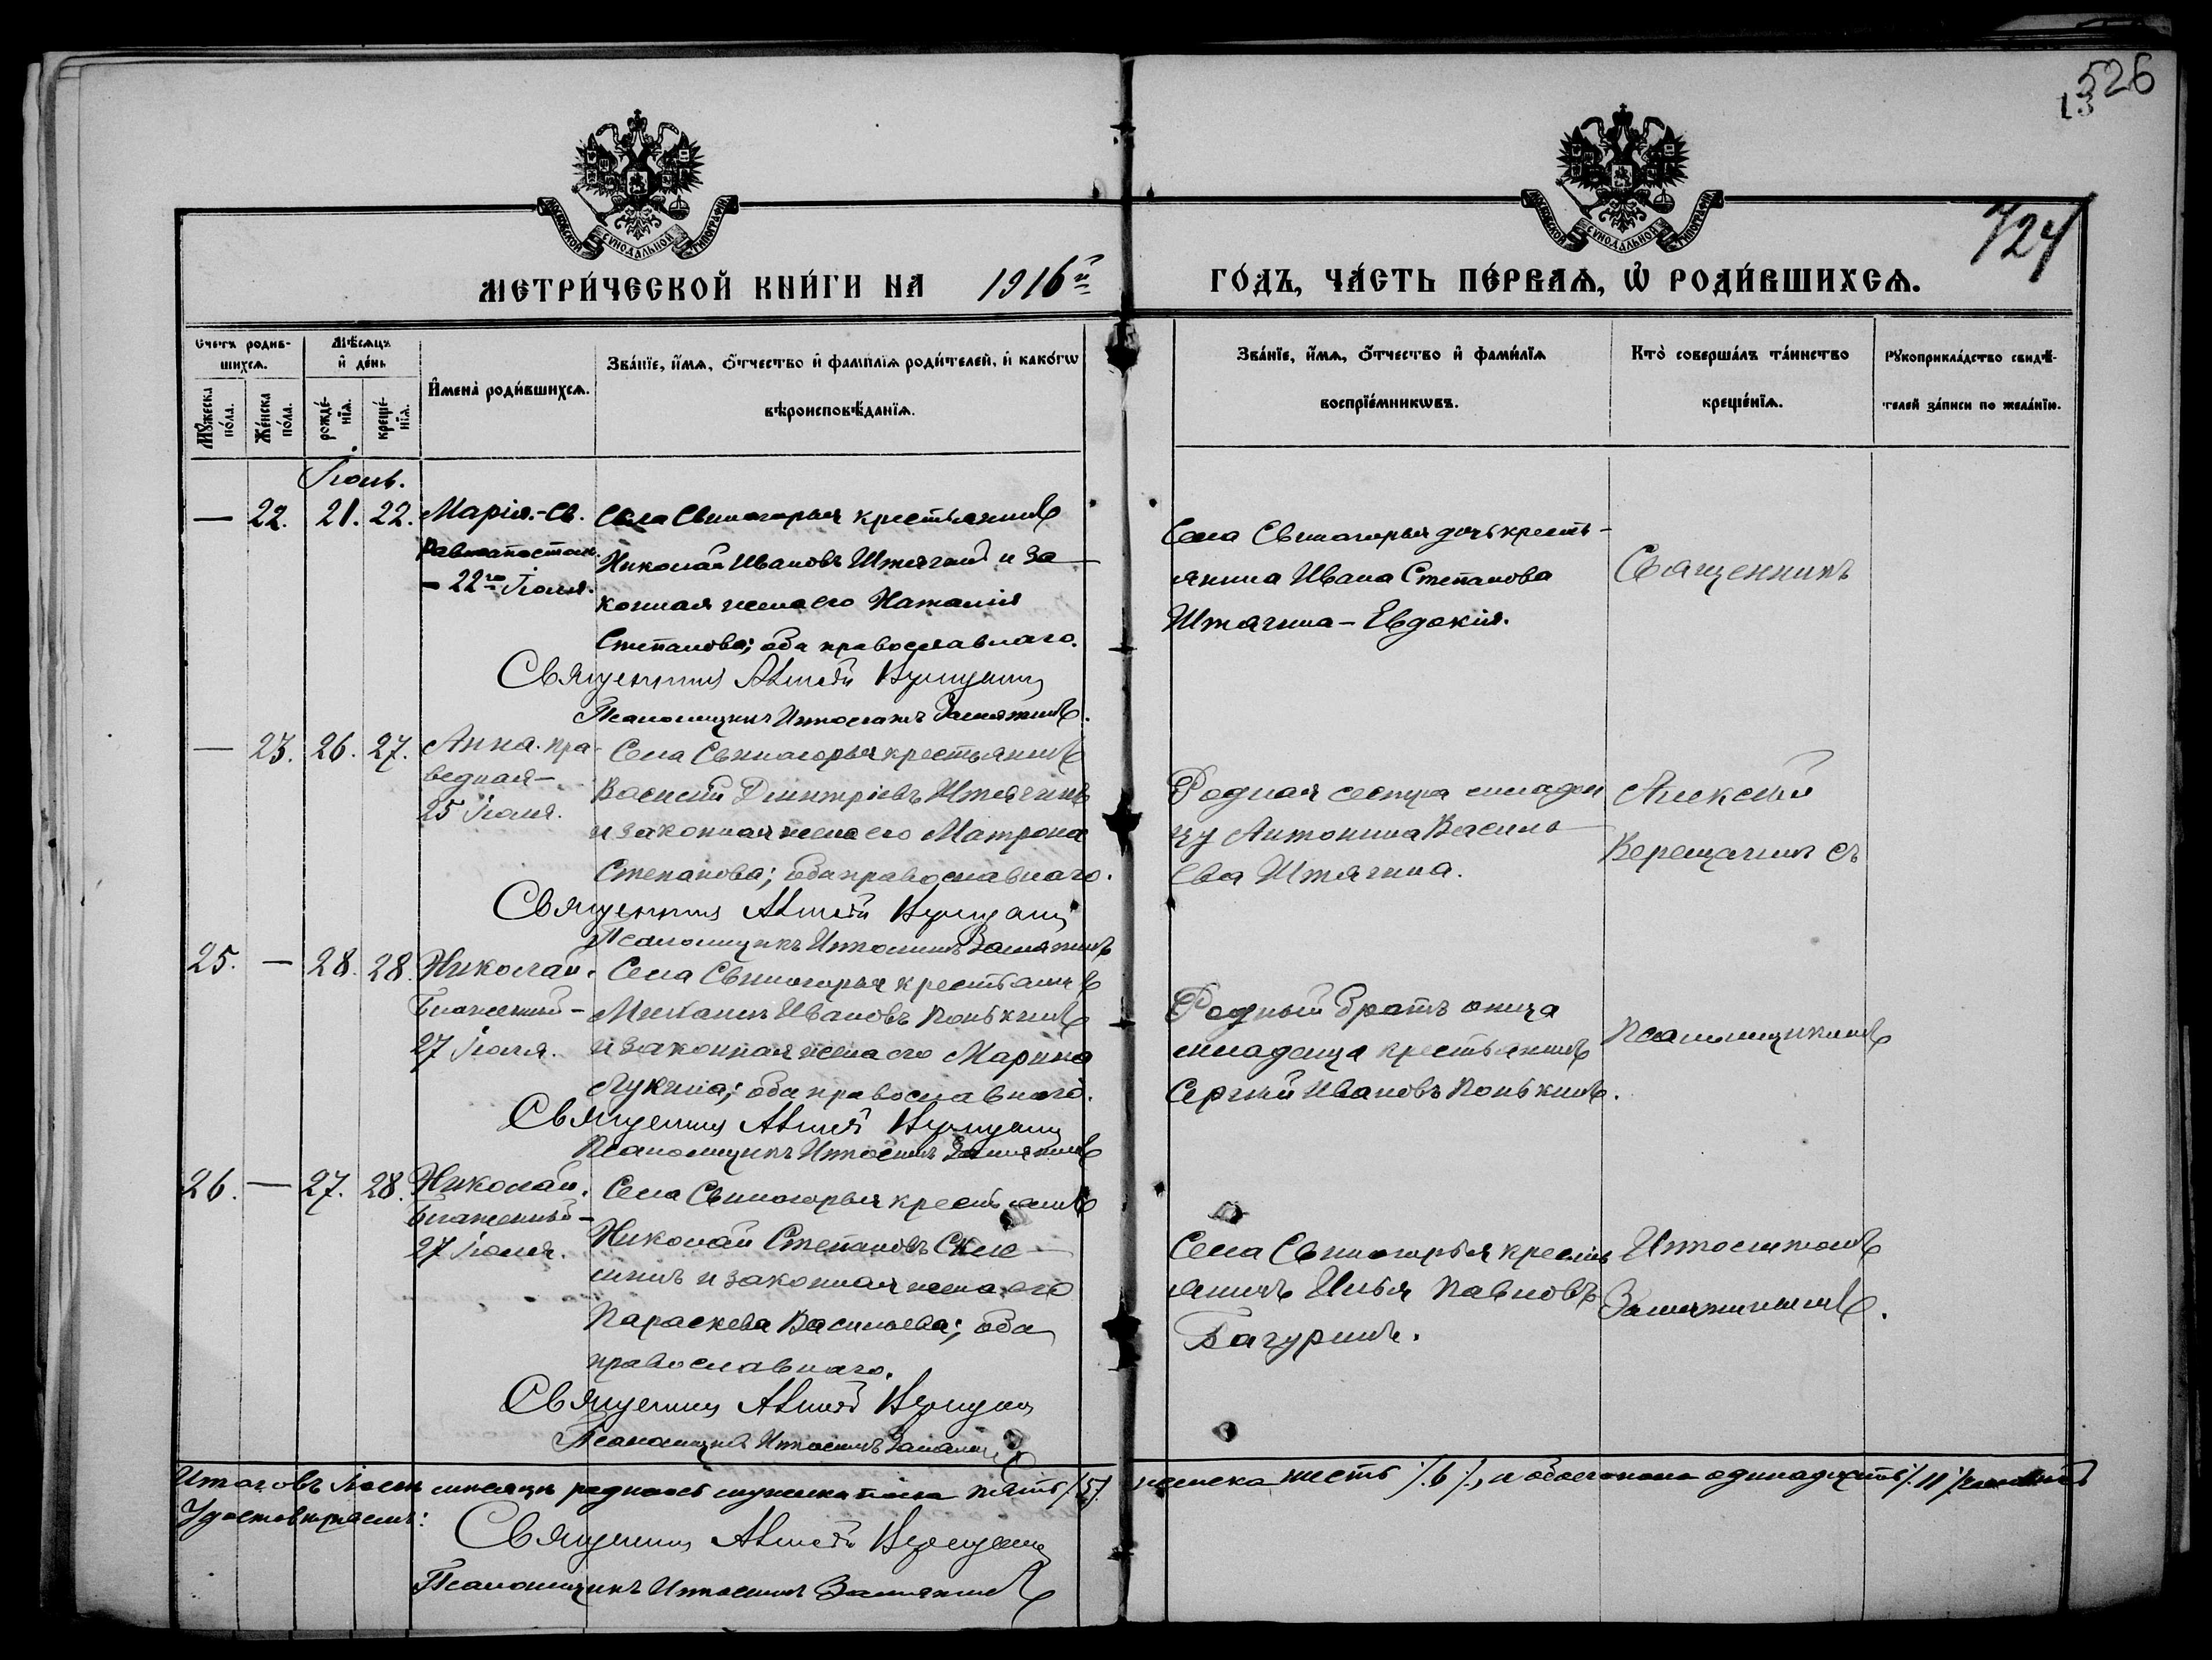 526
13
724
МОСКОВСКОЙ СѴНОДАЛЬНОЙ ТИПОГРАФІИ
МОСКОВСКОЙ СѴНОДАЛЬНОЙ ТИПОГРАФІИ
МЕТРИ́ЧЕСКОЙ КНИ́ГИ НА 1916й
ГО́ДЪ, ЧА́СТЬ ПЕ́РВАѦ, Ѽ РОДИ́ВШИХСѦ.
Счетъ родив-
шихсѧ.
Мѣ́сѧцъ
и҆ де́нь
Мꙋ́жеска
по́ла.
Же́нска
по́ла.
рожде́-
нїѧ.
креще́-
нїѧ.
И҆мена̀ роди́вшихсѧ.
Зва́нїе, и҆́мѧ, ѻ҆́тчество и҆ фамі́лїѧ роди́телей, и҆ како́гѡ
вѣроисповѣ́данїѧ.
Зва́нїе, и҆́мѧ, ѻ҆́тчество и҆ фами́лїѧ
воспрїе́мникѡвъ.
Кто̀ соверша́лъ та́инство
креще́нїѧ.
Рꙋкоприкла́дство свидѣ́-
телей за́писи по жела́нїю.
Іюль.
— 22. 21. 22. Марія.-Св.
Равноапостол.
- 22го Іюля.
Села Свиногорья крестьянинъ
Николай Ивановъ Штягинъ и за-
конная жена его Наталія
Степанова; оба православнаго.
Священникъ Алексѣй Верещагин
Псаломщикъ Ипполитъ Замятинъ.
Села Свиногорья дочь кресть-
янина Ивана Степанова
Штягина - Евдокія.
Священникъ
— 23. 26. 27. Анна. пра-
ведная-
25 Іюля.
Села Свиногорья крестьянинъ
Василій Димитріевъ Штягинъ
и законная жена его Матрона
Степанова; оба православнаго.
Священникъ Алексѣй Верещагин
Псаломщикъ Ипполитъ Замятинъ
Родная сестра младен
цу Антонина Василь-
ева Штягина.
Алексѣй
Верещагинъ съ
25. — 28. 28. Николай.
Блаженный-
27 Іюля.
Села Свиногорья крестьянинъ
Михаилъ Ивановъ Понькинъ
и законная жена его Марина
Лукина; оба православнаго.
Священникъ Алексѣй Верещагин
Псаломщикъ Ипполитъ Замятинъ
Родный братъ отца
младенца крестьянинъ
Сергѣй Ивановъ Понькинъ.
псаломщикомъ
26. — 27. 28. Николай.
Блаженный-
27 Іюля.
Села Свиногорья крестьянинъ
Николай Степановъ
и законная жена его
Параскева Васильева; оба
православнаго.
Священникъ Алексѣй Верещагин
Псаломщикъ Ипполитъ Замятинъ
Села Свиногорья кресть
янинъ Илья Павловъ
Багуринъ.
Ипполитомъ
Замятинымъ.
Итого въ Іюлѣ мѣсяцѣ родилось мужеска пола пять /5/ женска шесть /6/, а обоего пола одинадцать /11/
Удостовѣряемъ:
Священникъ Алексѣй Верещагин
Псаломщикъ Ипполитъ Замятинъ